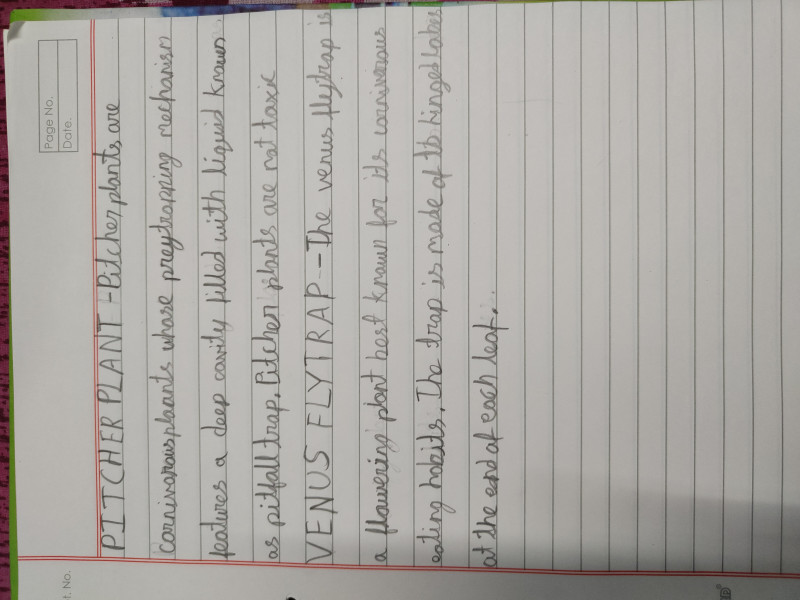 Page No.
Date.
PITCHER PLANT - Pitcher plants are
carnivorous plants whose prey trapping mechanism
features a deep cavity filled with liquid known
as pitfall trap. Pitcher plants are not toxic
VENUS FLYTRAP - The venus flytrap is
a flowering plant best known for its carnivorous
eating habits. The trap is made of tb hinged lobes
at the end of each leaf.
t. No.